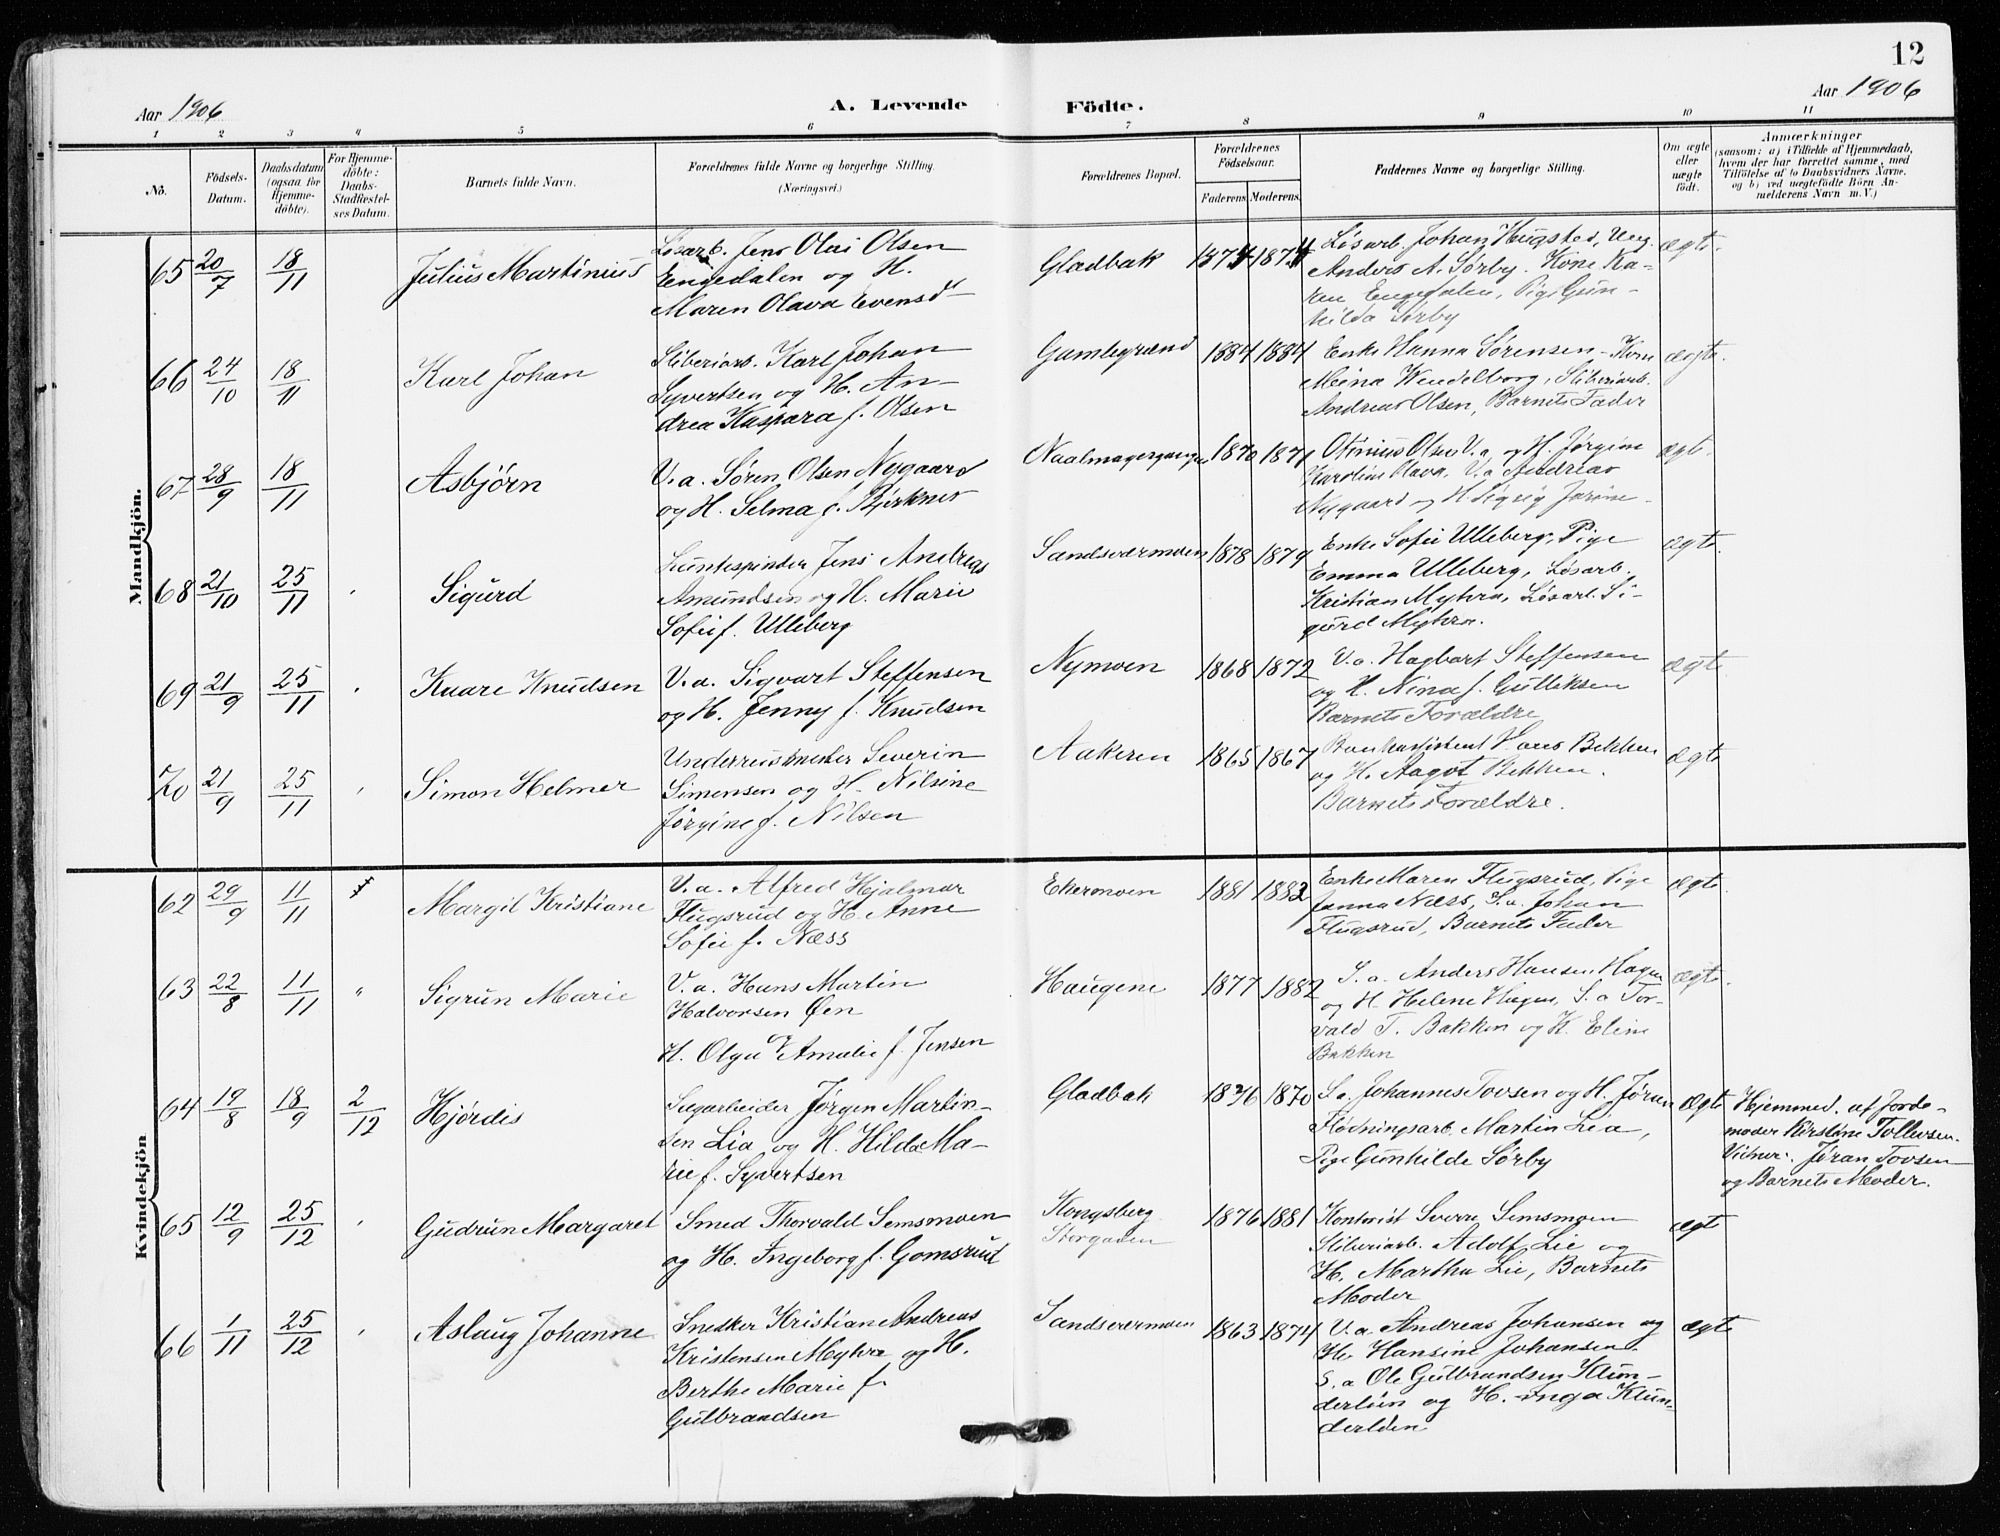 12
Aar 1906
A. Levende Födte.
Aar 1906
1 2 3 4 5 6 7 8 9 10 11
No.
Födsels-
Datum.
Daabsdatum
(ogsaa for
Hjemme-
döbte).
For Hjemme-
döbte:
Daabs-
Stadfæstel-
ses Datum.
Barnets fulde Navn.
Forældrenes fulde Navne og borgerlige Stilling.
(Næringsvei.)
Forældrenes Bopæl.
Forældrenes
Födselsaar.
Faderens.
Moderens.
Faddernes Navne og borgerlige Stilling.
Om ægte
eller
uægte
födt.
Anmærkninger
(saasom: a) i Tilfælde af Hjemmedaab,
hvem der har forrettet samme, med
Tilföielse af to Daabsvidners Navne,
og b) ved uægtefödte Börn An-
melderens Navn m. V.)
Mandkjön.
65 20/7 18/11 Julius Martinius
Løsarb. Jens Olai Olsen
Engedalen og H.
Maren Olava Evensd
Gladbak 1874 1874
Løsarb. Johan Hugsted, Ung.
Anders A. Sørby. Kone Ka-
ren Engedalen, Pige Gun-
hilda Sørby
ægte.
66 24/10 18/11 Karl Johan
Sliberiarb. Karl Johan
Syvertsen og H. An-
drea Kaspara f. Olsen
Gamlegrænd 1884 1884
Enke Hanna Sørensen - Kone
Meina Wendelborg, Sliberiarb.
Andreas Olsen, Barnets Fader
ægte.
67 28/9 18/11 Asbjörn
V.a. Søren Olsen Nygaard
og H. Selma f. Bjerknes
Naalmagergangen 1870 1871
Otinius Olsen V.a. og H. Jørgine
Karoline Olava, V.a Andreas
Nygaard og H
ægte.
68 21/10 25/11 Sigurd
Luntespinder Jens Andreas
Amundsen og H. Marie
Sofie f. Ulleberg
Sandsværmoen 1878 1879
Enke Sofie Ulleberg, Pige
Emma Ulleberg, Løsarb.
Kristian Myhra, Løsarb. Si-
gurd Myhra.
ægte.
69 21/9 25/11 Kaare Knudsen
V.a. Sigvart Steffensen
og H. Jenny f. Knudsen
Nymoen 1868 1872
V.a. Hagbart Steffensen
og H. Nina f. Gulliksen
Barnets Forældre
ægte.
70 21/9 25/11 Simon Helmer
Severin
Simensen og H. Nilsine
Jørgine f. Nilsen
Aakeren 1865 1867
Hans Bekken
og H. Aagot Bekken.
Barnets Forældre.
ægte
Kvindekjön
62 29/9 11/11 Margit Kristiane
V.a. Alfred Hjalmar
Flugsrud og H. Anne
Sofie f. Næss
Ekermoen 1881 1882
Enke Maren Flugsrud, Pige
Janna Næss, S.a. Johan
Flugsrud, Barnets Fader
ægte.
63 22/8 11/11 " Sigrun Marie
V.a. Hans Martin
Halvorsen Øen
og
H. Olga Amalie f. Jensen
Haugene 1877 1882
S.a. Anders Hansen Hagen
og H. Helene Hagen, S.a Tor-
vald T. Bakken og K. Eline
Bakken
ægte.
64 19/8 18/9 2/12 Hjørdis
Sagarbeider Jørgen Martin-
sen Lia og H. Hilda Ma-
rie f. Syvertsen
Gladbak 1876 1870
S.a. Johannes Tovsen og H. Jøran
Fløдningsarb. Martin Lia,
Pige Gunhilde Sørby
ægte
Hjemmed. af Jorde-
moder Kirstine Tollevsen.
Vidner: Jøran Tovsen
og Barnets Moder.
65 12/9 25/12 Gudrun Margaret
Smed Thorvald Semsmoen
og H. Ingeborg f. Gomsrud
Kongsberg
Storgaden
1876 1881
Kontorist Sverre Semsmoen
Sliberiarb. Adolf Lie og
H. Martha Lie, Barnets
Moder
ægte
66 1/11 25/12 Aslaug Johanne
Snedker Kristian Andreas
Kristensen Myhra og H.
Berthe Marie f.
Gulbrandsen
Sandsværmoen 1863 1874
V.a. Andreas Johansen og
H. Hansine Johansen.
S.a Ole Gulbrandsen Klun-
derlien og H. Inga Klun-
derlien
ægte